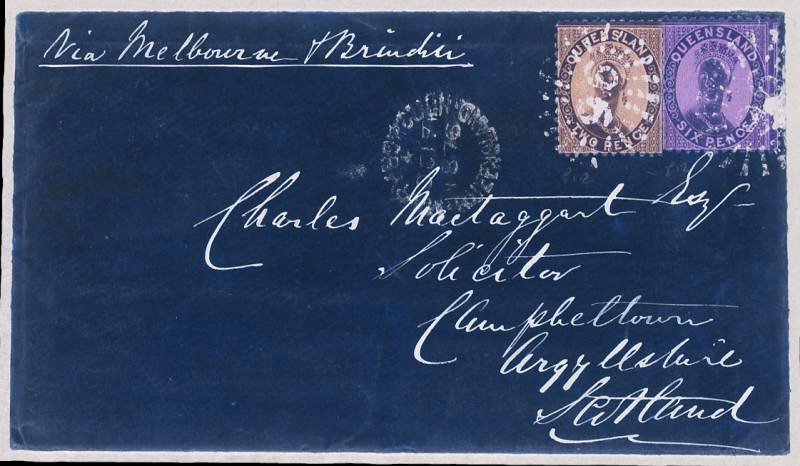 Via Melbourne & Brindisi
QUEENSLAND
TWO PENCE
QUEENSLAND
SIX PENCE
Charles Mactaggart Esqr
Solicitor
Campbeltown
Argyllshire
Scotland